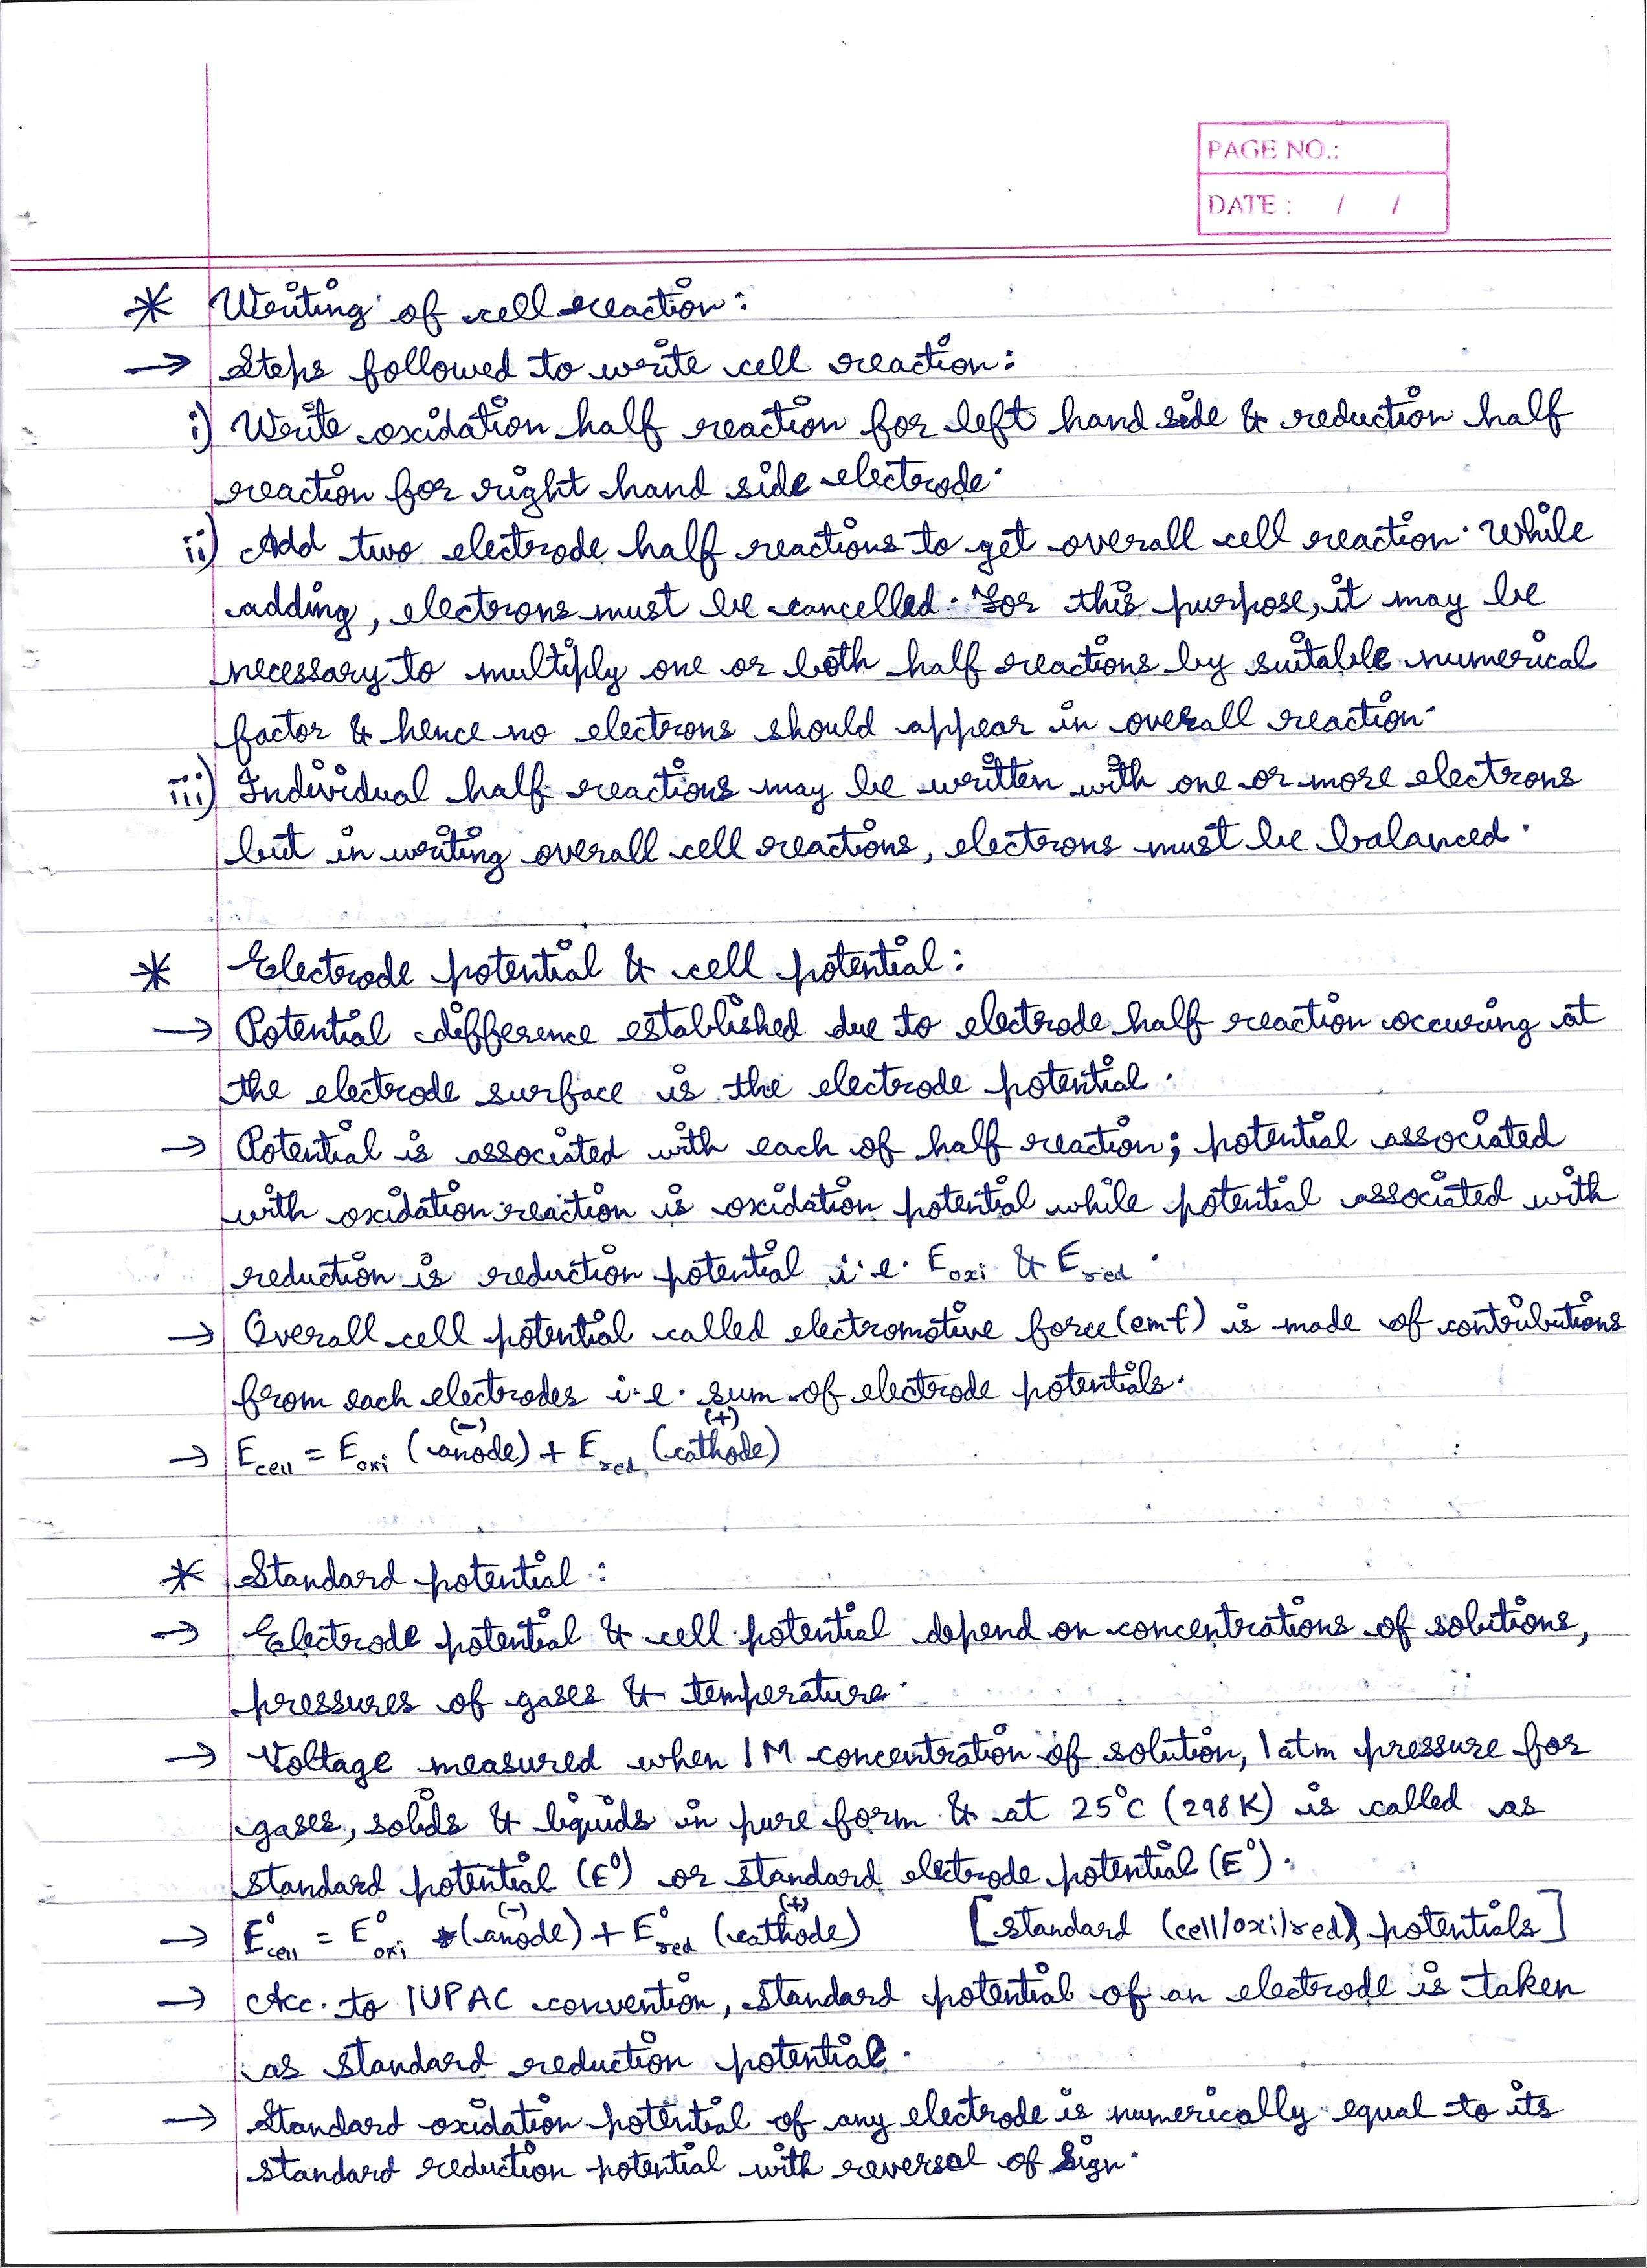 PAGE NO.:
DATE : / /
* Writing of cell reaction:
→ Steps followed to write cell reaction:
i) Write oxidation half reaction for left hand side & reduction half
reaction for right hand side electrode.
ii) Add two electrode half reactions to get overall cell reaction. While
adding, electrons must be cancelled. For this purpose, it may be
necessary to multiply one or both half reactions by suitable numerical
factor & hence no electrons should appear in overall reaction.
iii) Individual half reactions may be written with one or more electrons
but in writing overall cell reactions, electrons must be balanced.
* Electrode potential & cell potential:
→ Potential difference established due to electrode half reaction occuring at
the electrode surface is the electrode potential.
→ Potential is associated with each of half reaction; potential associated
with oxidation reaction is oxidation potential while potential associated with
reduction is reduction potential i.e. E oxi & E red.
→ Overall cell potential called electromotive force (emf) is made of contributions
from each electrodes i.e. sum of electrode potentials.
(-) (+)
→ E cell = E oxi (anode) + E red (cathode)
* Standard potential:
→ Electrode potential & cell potential depend on concentrations of solutions,
pressures of gases & temperature.
→ Voltage measured when 1M concentration of solution, 1 atm pressure for
gases, solids & liquids in pure form & at 25°C (298 K) is called as
standard potential (E°) or standard electrode potential (E°).
(-) (+)
→ E° cell = E° oxi (anode) + E° red (cathode) [standard (cell/oxi/red) potentials]
→ Acc. to IUPAC convention, standard potential of an electrode is taken
as standard reduction potential.
→ Standard oxidation potential of any electrode is numerically equal to its
standard reduction potential with reversal of sign.